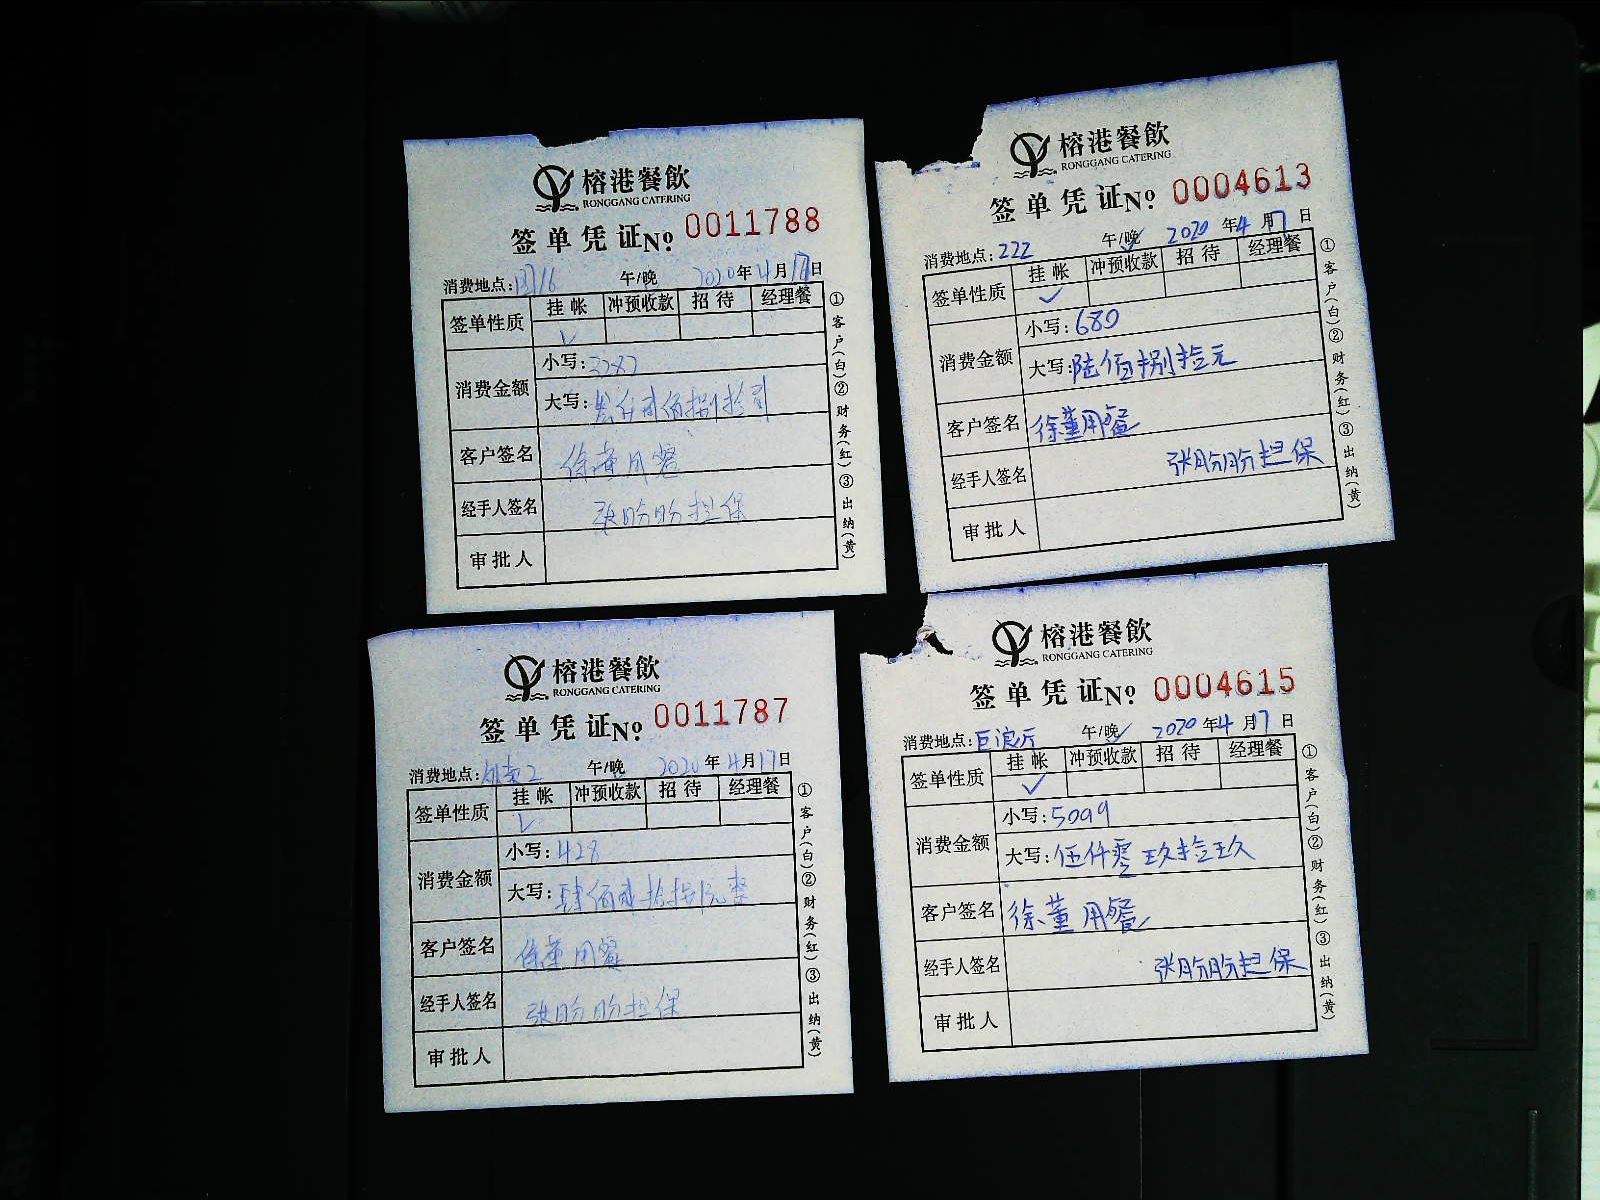 榕港餐飲
RONGGANG CATERING
签单凭证 № 0011788
消费地点: 午/晚 2020年4月17日
签单性质 挂帐 冲预收款 招待 经理餐
✓
消费金额
小写:3282
大写:叁仟贰佰捌拾贰
客户签名 徐董用餐
经手人签名 张盼盼担保
审批人
①客户(白)②财务(红)③出纳(黄)
榕港餐飲
RONGGANG CATERING
签单凭证 № 0004613
消费地点:222 午/晚✓ 2020年4月17日
签单性质 挂帐 冲预收款 招待 经理餐
✓
消费金额
小写:680
大写:陆佰捌拾元
客户签名 徐董用餐
经手人签名 张盼盼担保
审批人
①客户(白)②财务(红)③出纳(黄)
榕港餐飲
RONGGANG CATERING
签单凭证 № 0011787
消费地点: 午/晚 2020年4月17日
签单性质 挂帐 冲预收款 招待 经理餐
✓
消费金额
小写:428
大写:肆佰贰拾捌元整
客户签名 徐董用餐
经手人签名 张盼盼担保
审批人
①客户(白)②财务(红)③出纳(黄)
榕港餐飲
RONGGANG CATERING
签单凭证 № 0004615
消费地点:巨浪厅 午/晚✓ 2020年4月17日
签单性质 挂帐 冲预收款 招待 经理餐
✓
消费金额
小写:5099
大写:伍仟零玖拾玖
客户签名 徐董用餐
经手人签名 张盼盼担保
审批人
①客户(白)②财务(红)③出纳(黄)